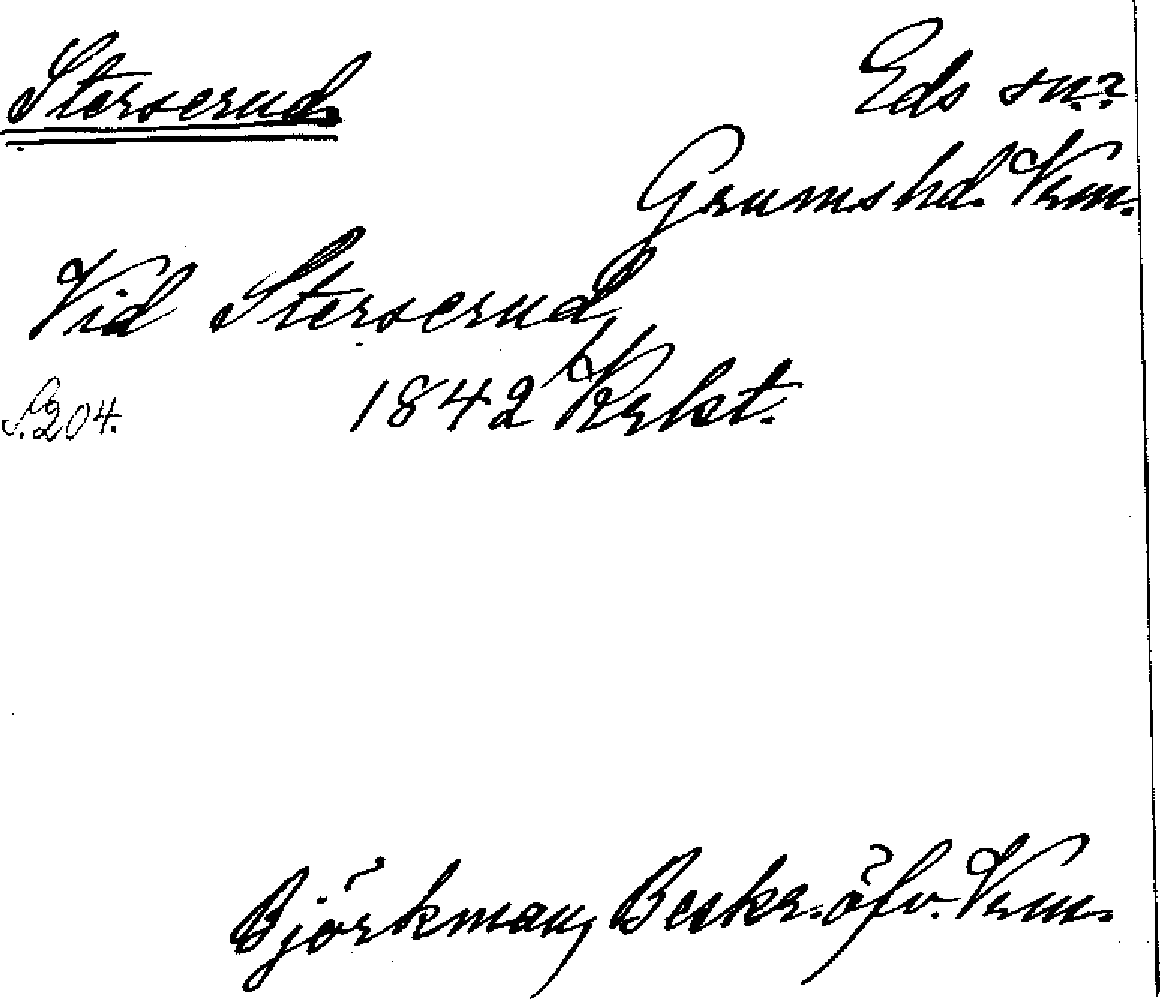 Sterserud. Eds sn?
Grums hd. Vrm.
Vid Sterserud,
S. 204. 1842 Krkt.
Björkman, Beskr. öfv. Vrm.